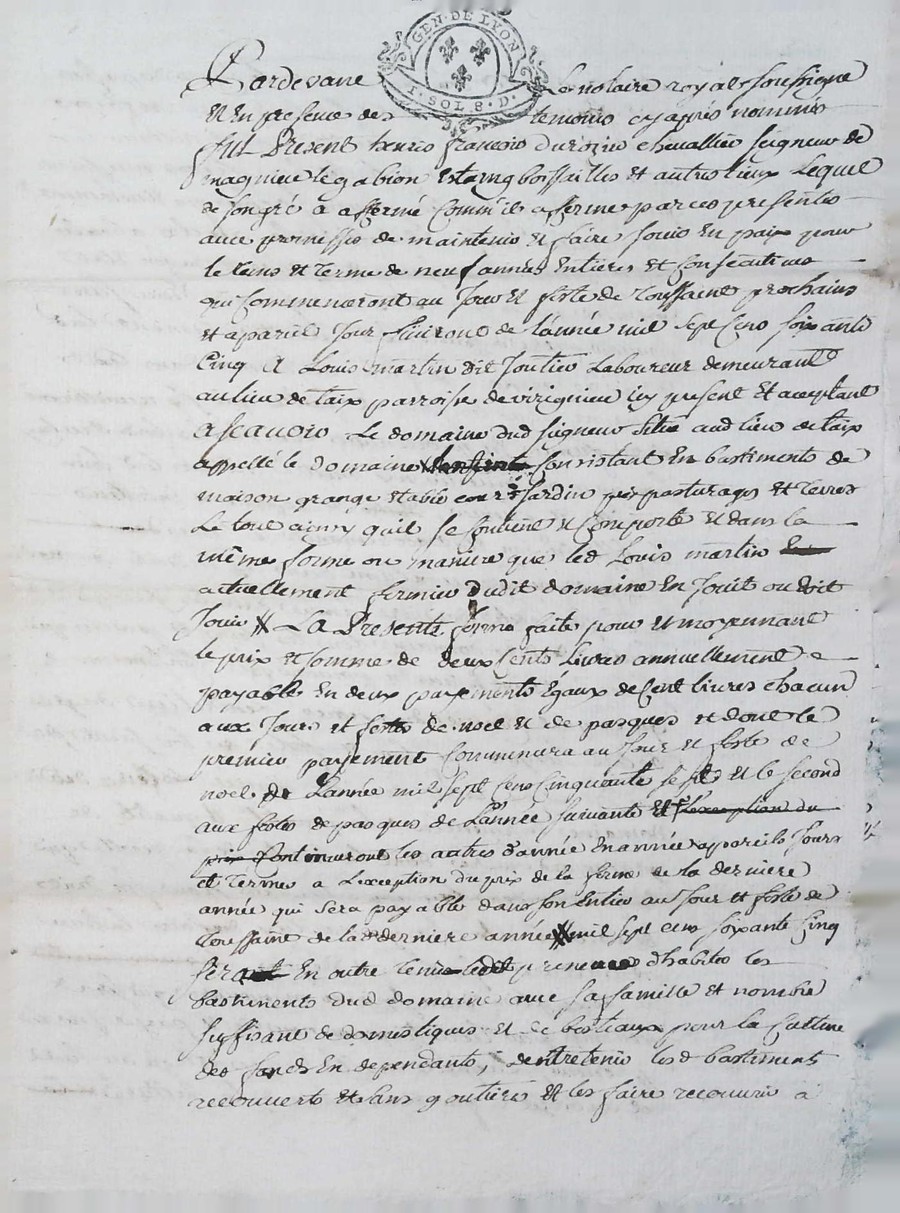 GEN · DE LYON
I · SOL 8 · D ·
Pardevant Le notaire royal soussigne
Et En presence des temoins cy apres nommés
fut Present henry françois chevallier seigneur de
magnieu le gabion Estaing boissailles et autres lieux Lequel
de son gré a affermé Comm'il afferme par ces presentes
avec promesse de maintenir et faire Jouir En paix pour
le tems et terme de neuf années Entieres et Consecutives
qui Commenceront au Jour et feste de toussaint prochains
et a pareil Jour finiront de L'année mil sept Cens soixante
Cinq A Louis martin dit Laboureur demeurant
au lieu de taix parroisse de virignieu icy present et acceptant
Ascavoir Le domaine dud seigneur Situé aud lieu de taix
appellé le domaine Consistant En bastiments de
maison grange Etable cour Jardin prés pasturages et terres
Le tout ainsy quil se Contient et Comporte et dans la
même forme ou maniere que led Louis martin
actuellement fermier dudit domaine En Jouit ou doit
Jouir La Presente ferme faite pour et moyennant
le prix et somme de deux Cents Livres annuellement
payable En deux payements Egaux de Cent livres chacun
aux Jours et festes de noel et de pasques et dont le
premier payement Commencera au Jour et feste de
noel de L'année mil sept Cens Cinquante sept et le second
aux festes de pasques de L'année suivante Et L'exception du
prix Continueront les autres d'année En année a pareils Jours
et termes a L'exception du prix de la ferme de la derniere
année qui sera payable dans son Entier au Jour et feste de
toussaint de lad derniere année mil sept cens soixante Cinq
sera En outre tenu preneur d'habiter les
bastiments dud domaine avec sa famille et nombre
suffisant de domestiques et de bestiaux pour la Culture
des fonds En dependants, d'entretenir lesd bastiments
recouverts et sans goutieres et les faire recouvrir a